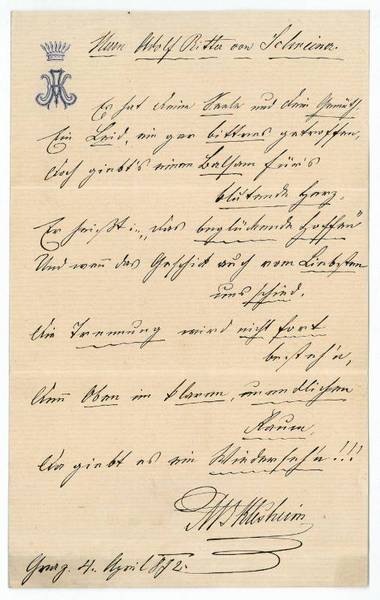 Herrn Adolf Ritter von Schreiner.
Es hat deine Seele und dein Gemüth
Ein Leid, ein gar bittres getroffen,
Doch giebt's einen Balsam für's
blutende Herz,
Er heißt: „das beglückende Hoffen"
Und wenn das Geschick auch vom Liebsten
uns schied,
Die Trennung wird nicht fort
besteh'n,
Denn Oben im klaren, unendlichen
Raum,
Da giebt es ein Wiederseh'n!!!
Klesheim
Graz 4. April 872.